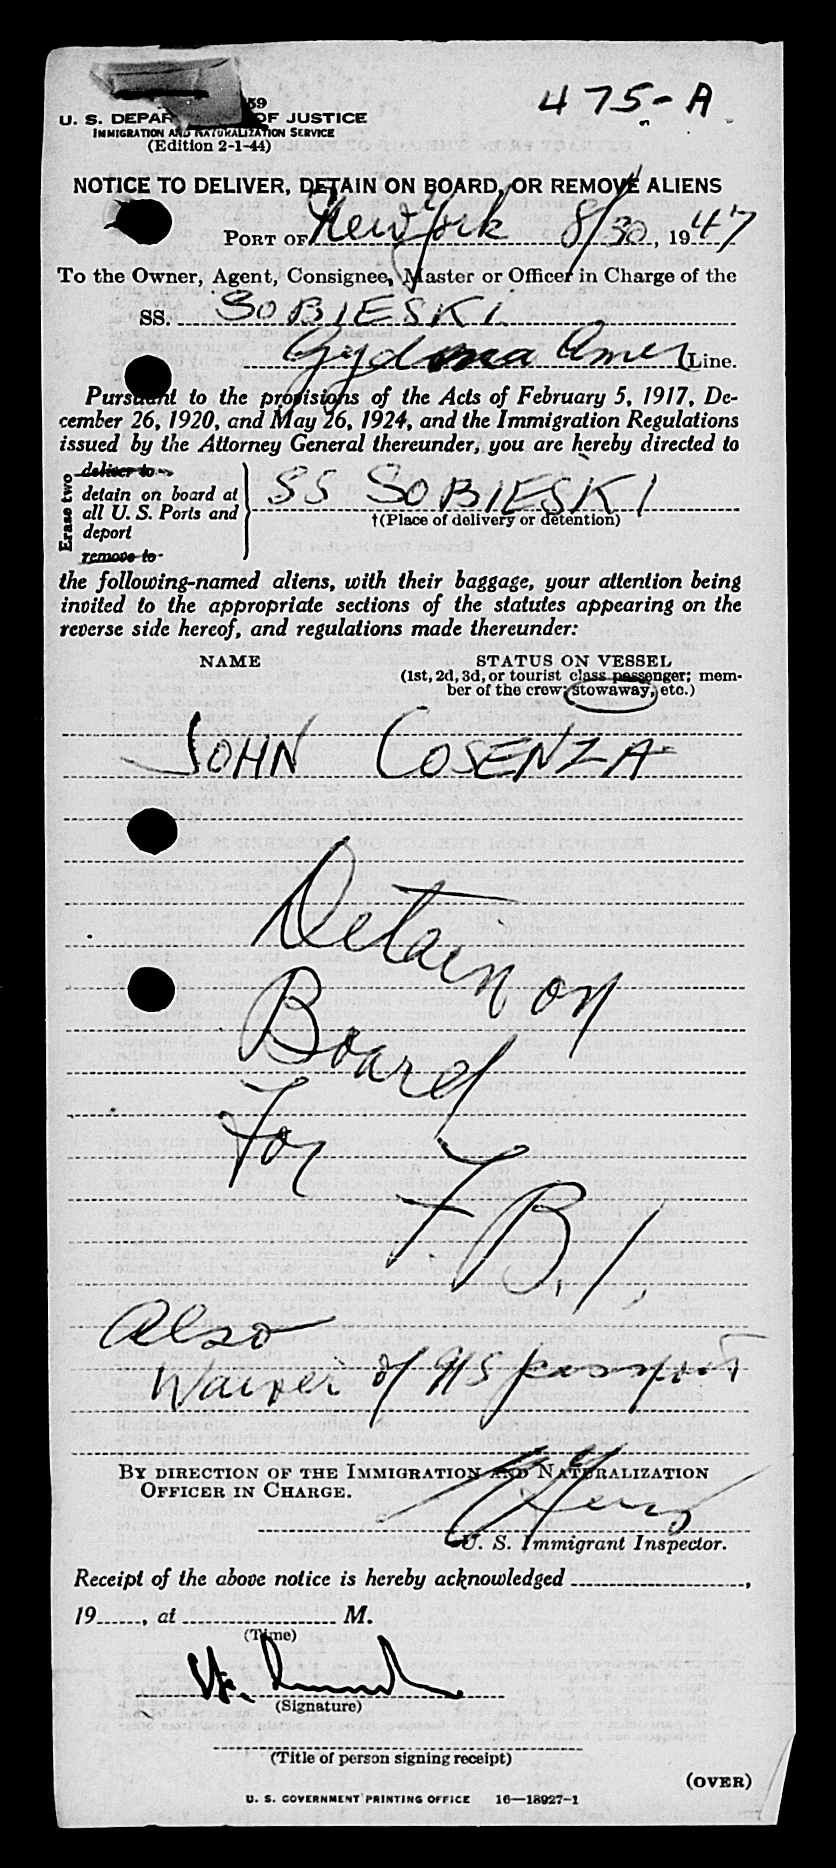 59
475-A
U. S. DEPAR OF JUSTICE
IMMIGRATION AND NATURALIZATION SERVICE
(Edition 2-1-44)
NOTICE TO DELIVER, DETAIN ON BOARD, OR REMOVE ALIENS
PORT OF New York 8/30, 1947
To the Owner, Agent, Consignee, Master or Officer in Charge of the
SS. SOBIESKI
Gydnia Amer Line.
Pursuant to the provisions of the Acts of February 5, 1917, De-
cember 26, 1920, and May 26, 1924, and the Immigration Regulations
issued by the Attorney General thereunder, you are hereby directed to
Erase two
deliver to
detain on board at
all U. S. Ports and
deport
remove to
SS SOBIESKI
†(Place of delivery or detention)
the following-named aliens, with their baggage, your attention being
invited to the appropriate sections of the statutes appearing on the
reverse side hereof, and regulations made thereunder:
NAME STATUS ON VESSEL
(1st, 2d, 3d, or tourist class passenger; mem-
ber of the crew; stowaway, etc.)
JOHN COSENZA
Detain on
Board
For F.B.I.
Also
Waiver of passport
BY DIRECTION OF THE IMMIGRATION AND NATURALIZATION
OFFICER IN CHARGE.
U. S. Immigrant Inspector.
Receipt of the above notice is hereby acknowledged ,
19 , at M.
(Time)
(Signature)
(Title of person signing receipt)
(OVER)
U. S. GOVERNMENT PRINTING OFFICE 16—18927-1